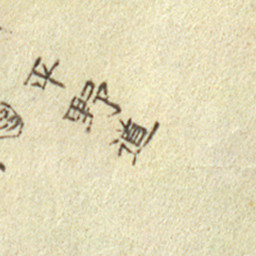 平野道